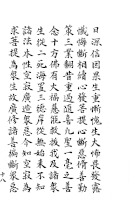 日深信因果生重慚愧生大怖畏發露
懺悔斷相續心發菩提心斷惡修善勤
策三業翻昔重過隨喜凡聖一毫之善
念十方佛有大福慧能救拔我及諸眾
生從二死海置三德岸從無始來不知
諸法本性空寂廣造眾惡今知空寂為
求菩提為眾生故廣修諸善徧斷眾惡
十八